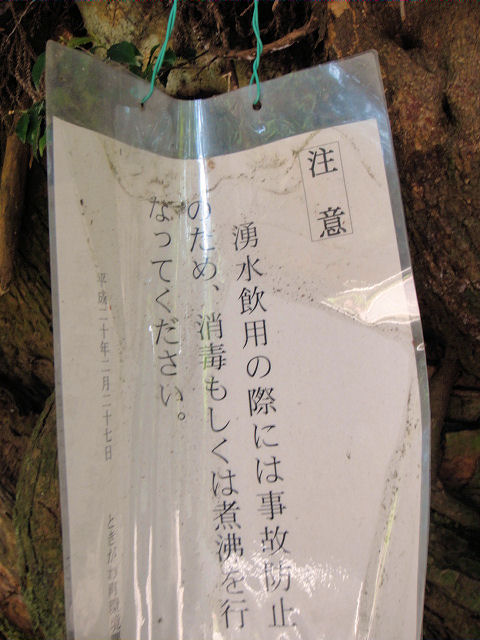 注意
湧水飲用の際には事故防止
のため、消毒もしくは煮沸を行
なってください。
平成二十年二月二十七日
ときがわ町環境